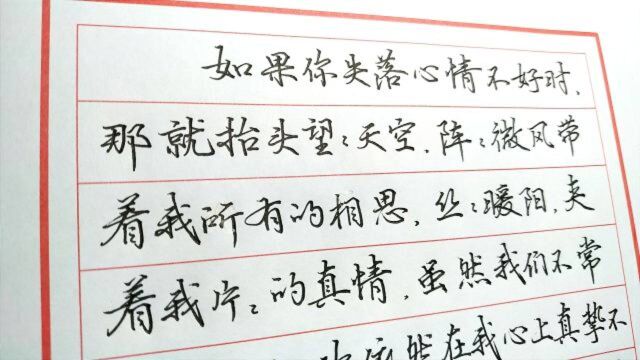 如果你失落心情不好时，
那就抬头望：天空，阵：微风带
着我所有的相思，丝：暖阳，夹
着我片：的真情，虽然我们不常
依然在我心上真挚不